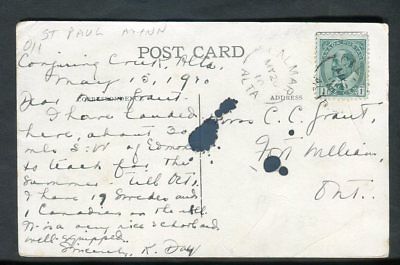 ST PAUL MINN
O/1
POST CARD
Conjuring Creek, Alta.
May 15, 1910
CORRESPONDENCE
ADDRESS
Dear Mrs. Grant.
I have landed
here, about 30
mls S.W. of Edmon
to teach for the
summer - till Oct.
I have 19 Swedes and
1 Canadian on the roll.
It is a very nice school and
well-equipped.
Sincerely, K. Day
ALMA
MY 2
10
ALTA
1
1
Mrs C. C. Grant,
Fort William,
Ont.